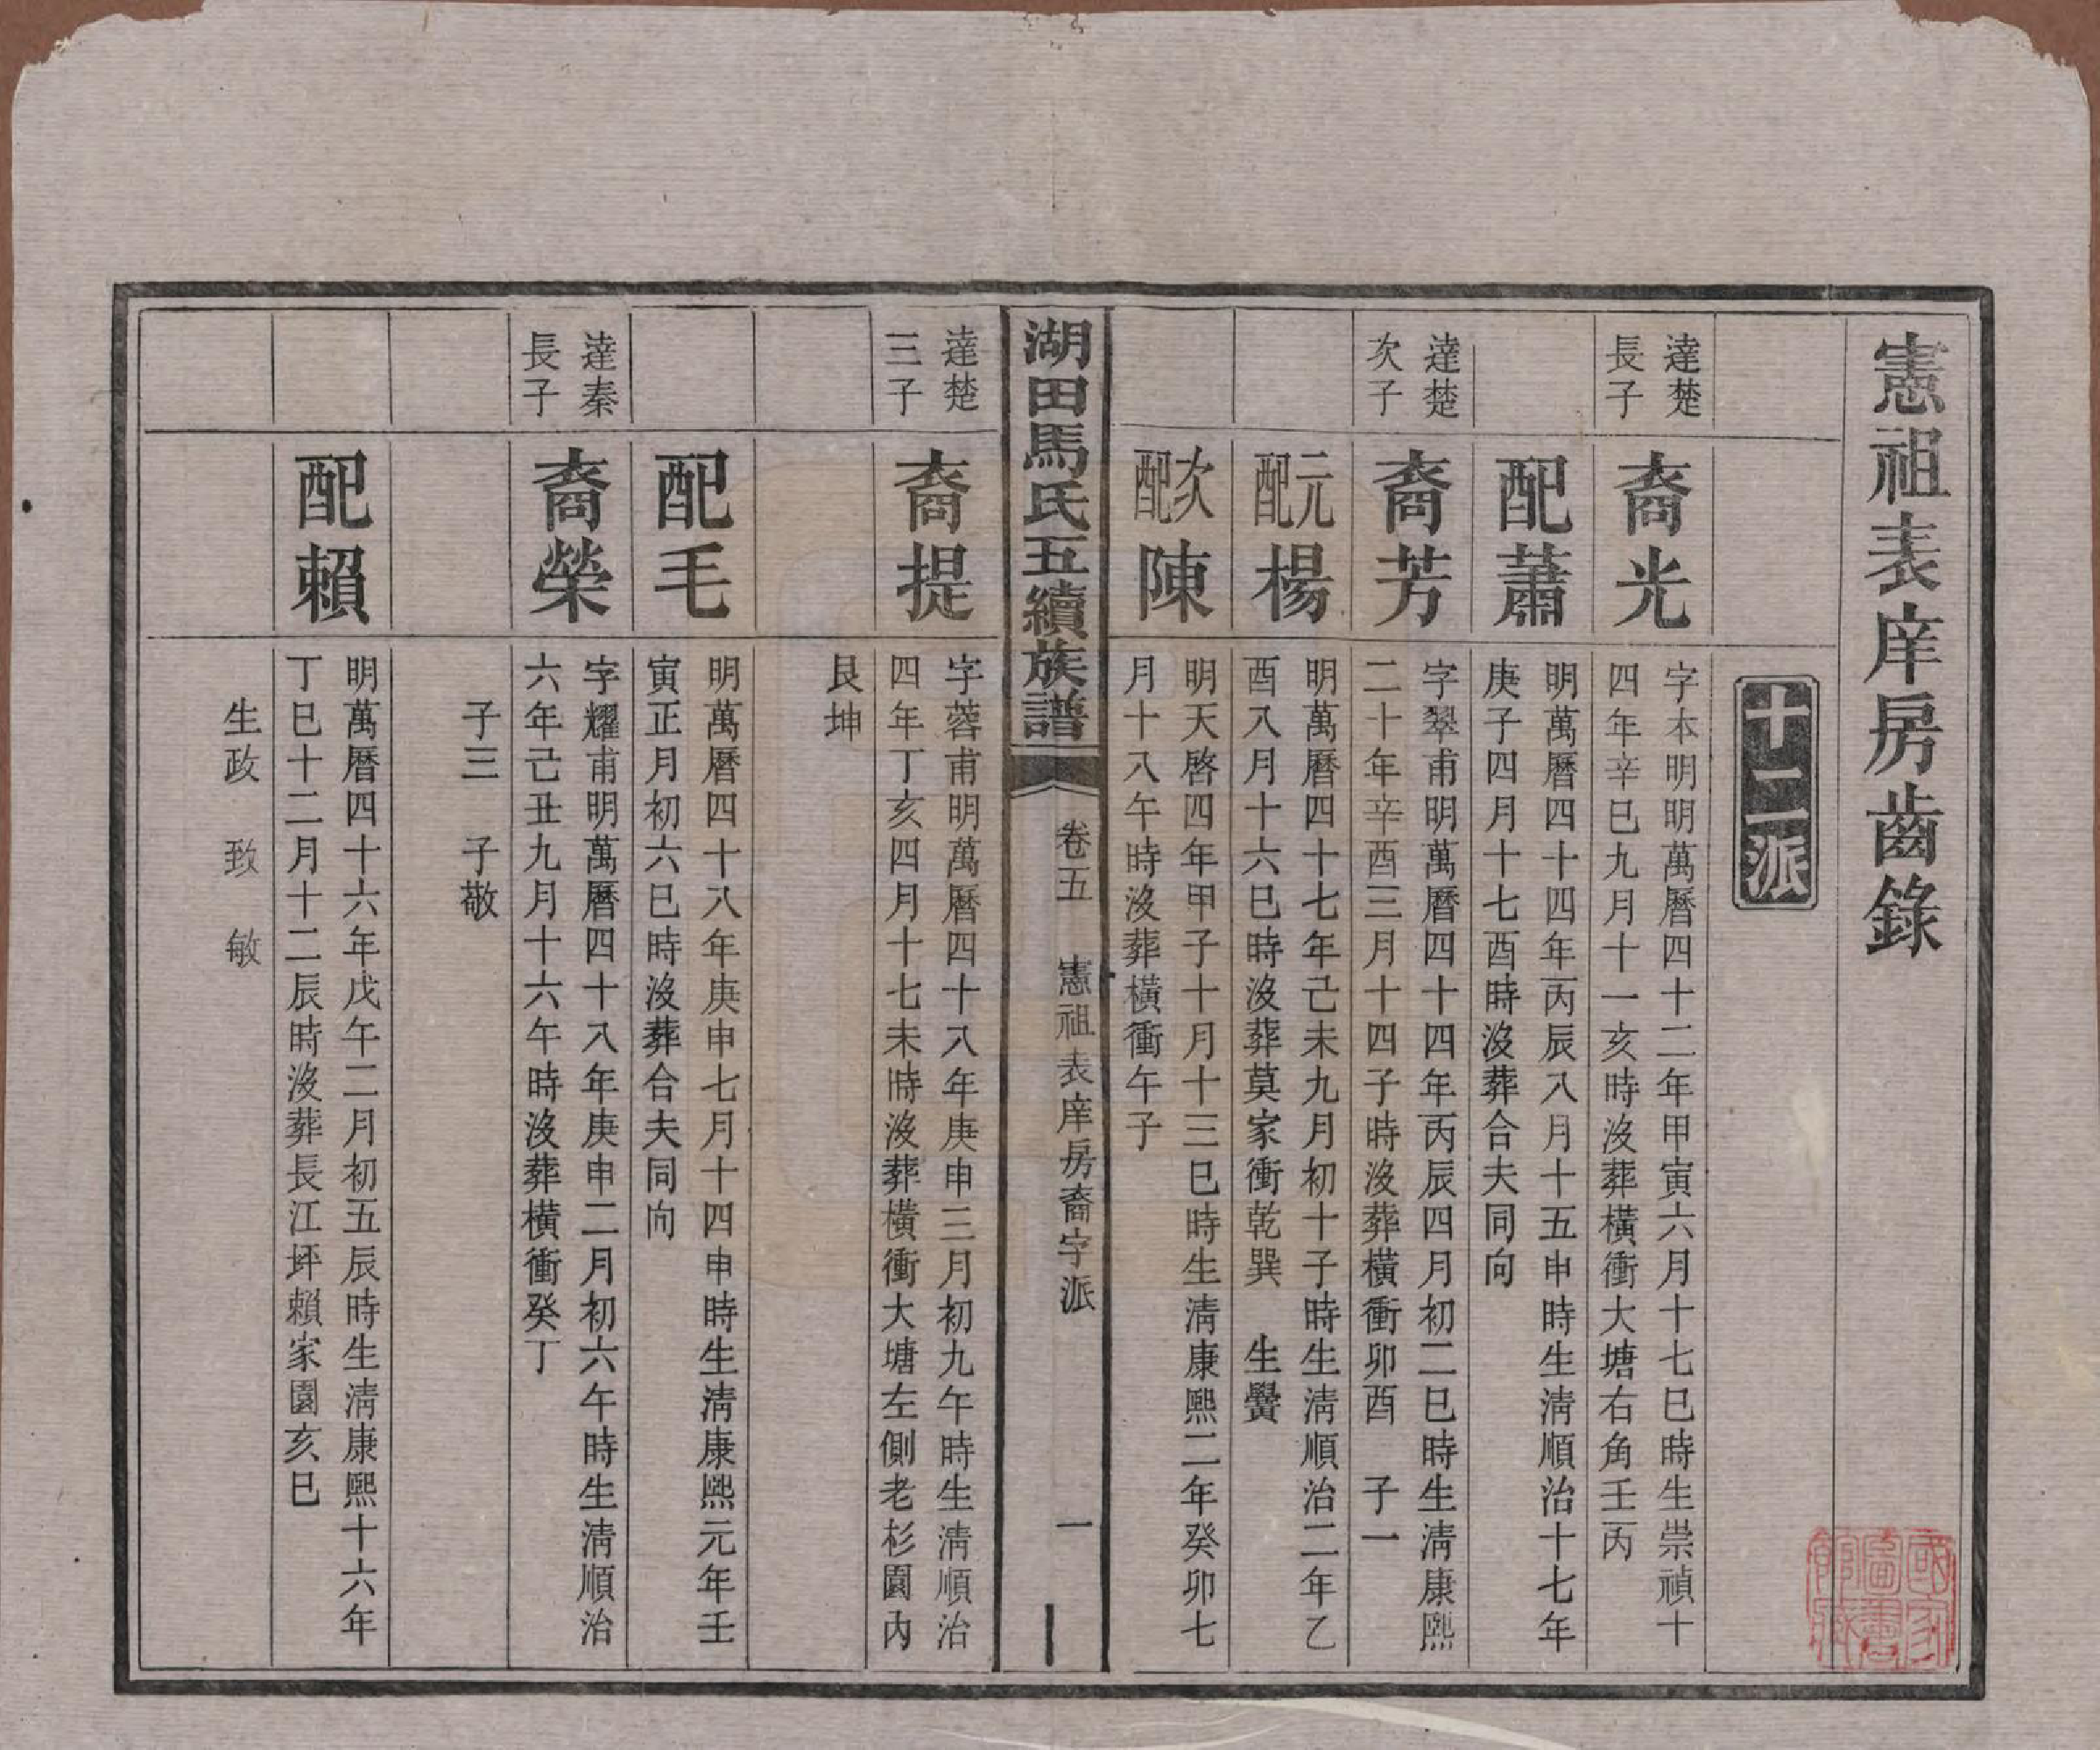 憲祖表庠房齒錄
十二派
達楚
長子
裔光
字本明明萬曆四十二年甲寅六月十七巳時生崇禎十
四年辛巳九月十一亥時沒葬橫衝大塘右角壬丙
配蕭
明萬曆四十四年丙辰八月十五申時生清順治十七年
庚子四月十七酉時沒葬合夫同向
達楚
次子
裔芳
字翠甫明萬曆四十四年丙辰四月初二巳時生清康熙
二十年辛酉三月十四子時沒葬橫衝卯酉 子一
元配楊
明萬曆四十七年己未九月初十子時生清順治二年乙
酉八月十六巳時沒葬莫家衝乾巽 生黌
次配陳
明天啓四年甲子十月十三巳時生清康熙二年癸卯七
月十八午時沒葬橫衝午子
湖田馬氏五續族譜
卷五 憲祖表庠房裔字派 一
達楚
三子
裔提
字蓉甫明萬曆四十八年庚申三月初九午時生清順治
四年丁亥四月十七未時沒葬橫衝大塘左側老杉園內
艮坤
配毛
明萬曆四十八年庚申七月十四申時生清康熙元年壬
寅正月初六巳時沒葬合夫同向
達秦
長子
裔榮
字耀甫明萬曆四十八年庚申二月初六午時生清順治
六年己丑九月十六午時沒葬橫衝癸丁
子三 子敬
配賴
明萬曆四十六年戊午二月初五辰時生清康熙十六年
丁巳十二月十二辰時沒葬長江坪賴家園亥巳
生政 致 敏
國家
圖書
館藏